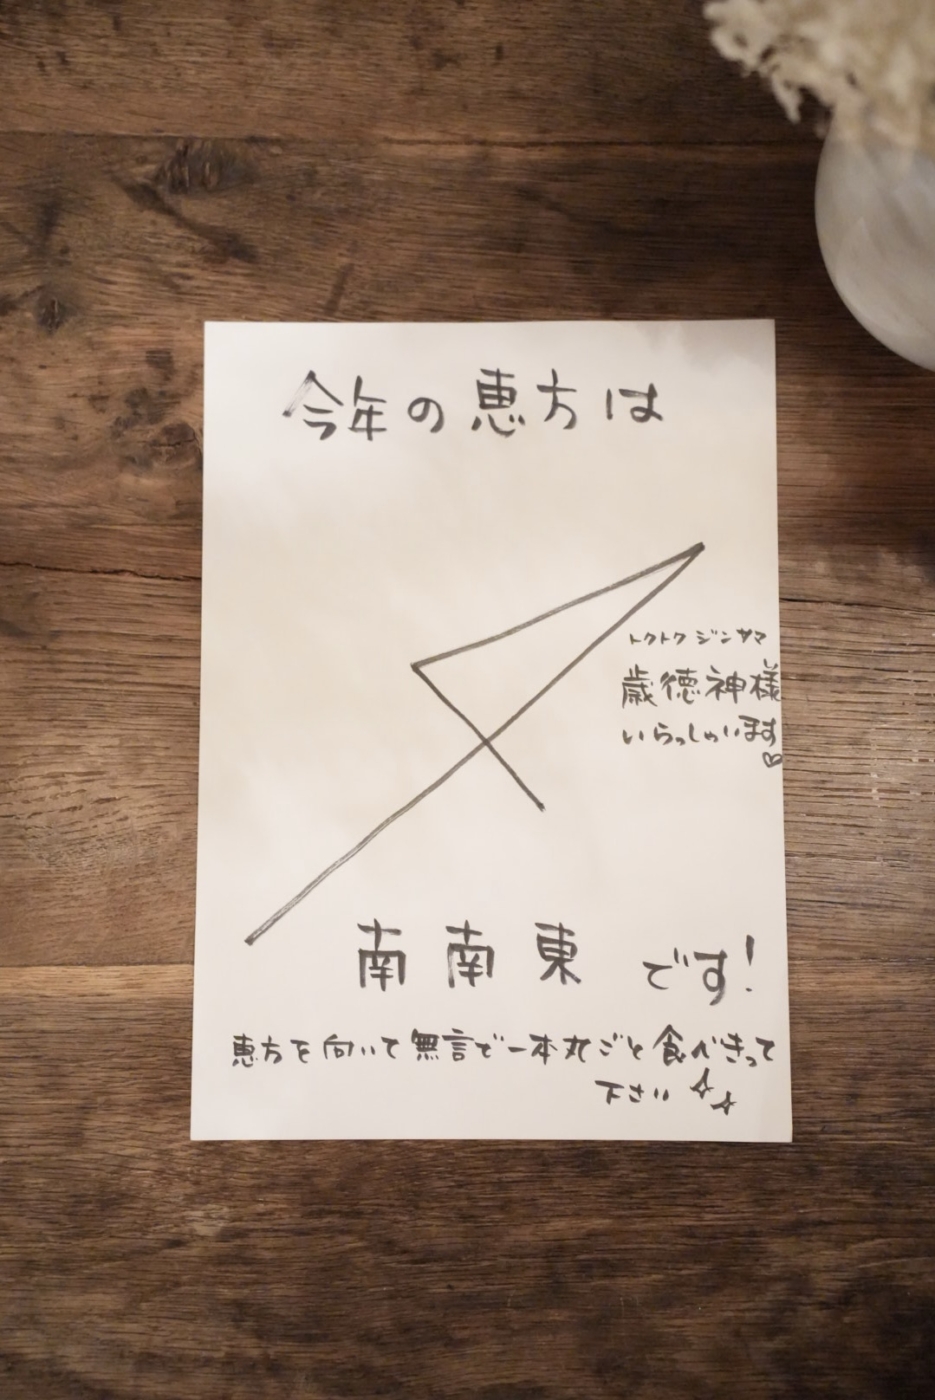 今年の恵方は
トクトクジンサマ
歳徳神様
いらっしゃいます♡
南南東 です!
恵方を向いて無言で一本丸ごと食べきって
下さい